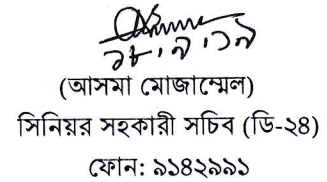 ১৮.৯.১৯
(আসমা মোজাম্মেল)
সিনিয়র সহকারী সচিব (ডি-২৪)
ফোন: ৯১৪২৯৯১